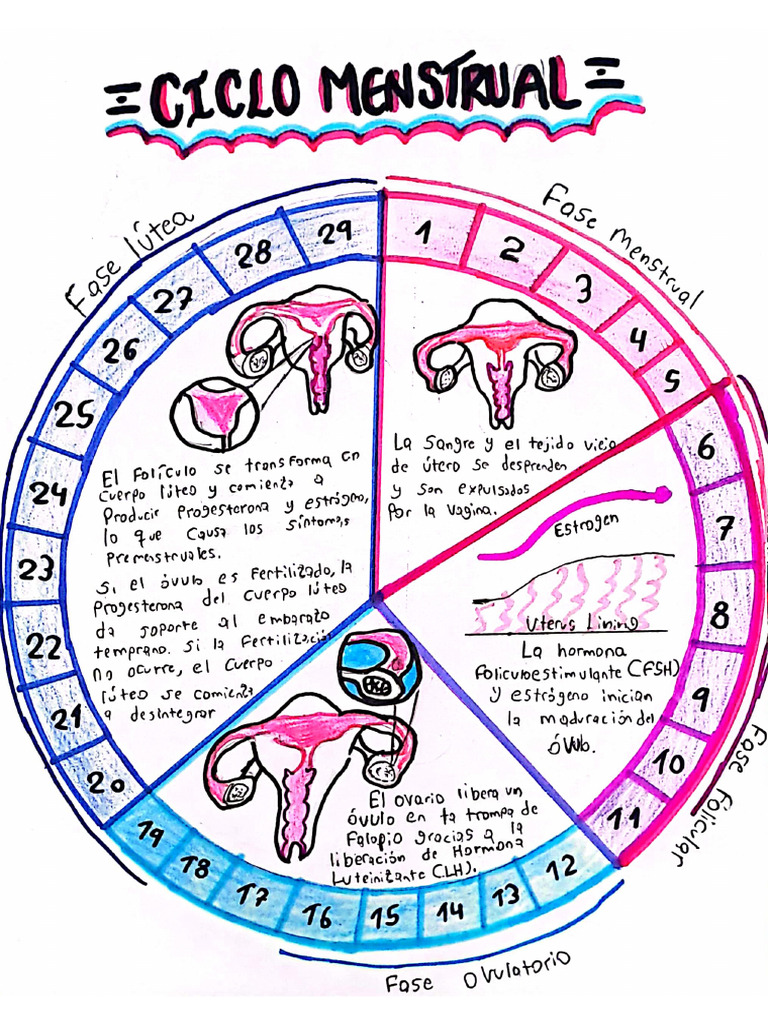 CICLO MENSTRUAL
Fase menstrual
1
2
3
4
5
La Sangre y el tejido viejo
de útero se desprenden
y son expulsados
Por la vagina.
Fase Folicular
6
7
8
9
10
11
Estrogen
Uterus Lining
La hormona
Foliculoestimulante (FSH)
y estrógeno inician
la maduración del
óvulo.
Fase Ovulatorio
12
13
14
15
16
17
18
19
El ovario libera un
óvulo en la trompa de
Falopio gracias a la
liberación de Hormona
Luteinizante (LH).
Fase lútea
20
21
22
23
24
25
26
27
28
29
El Folículo se transforma en
Cuerpo lúteo y comienza a
Producir Progesterona y estrógeno,
lo que causa los síntomas
Premenstruales.
Si el óvulo es Fertilizado, la
Progesterona del Cuerpo lúteo
da soporte al embarazo
temprano. Si la Fertilización
no ocurre, el Cuerpo
lúteo se comienza
a desintegrar